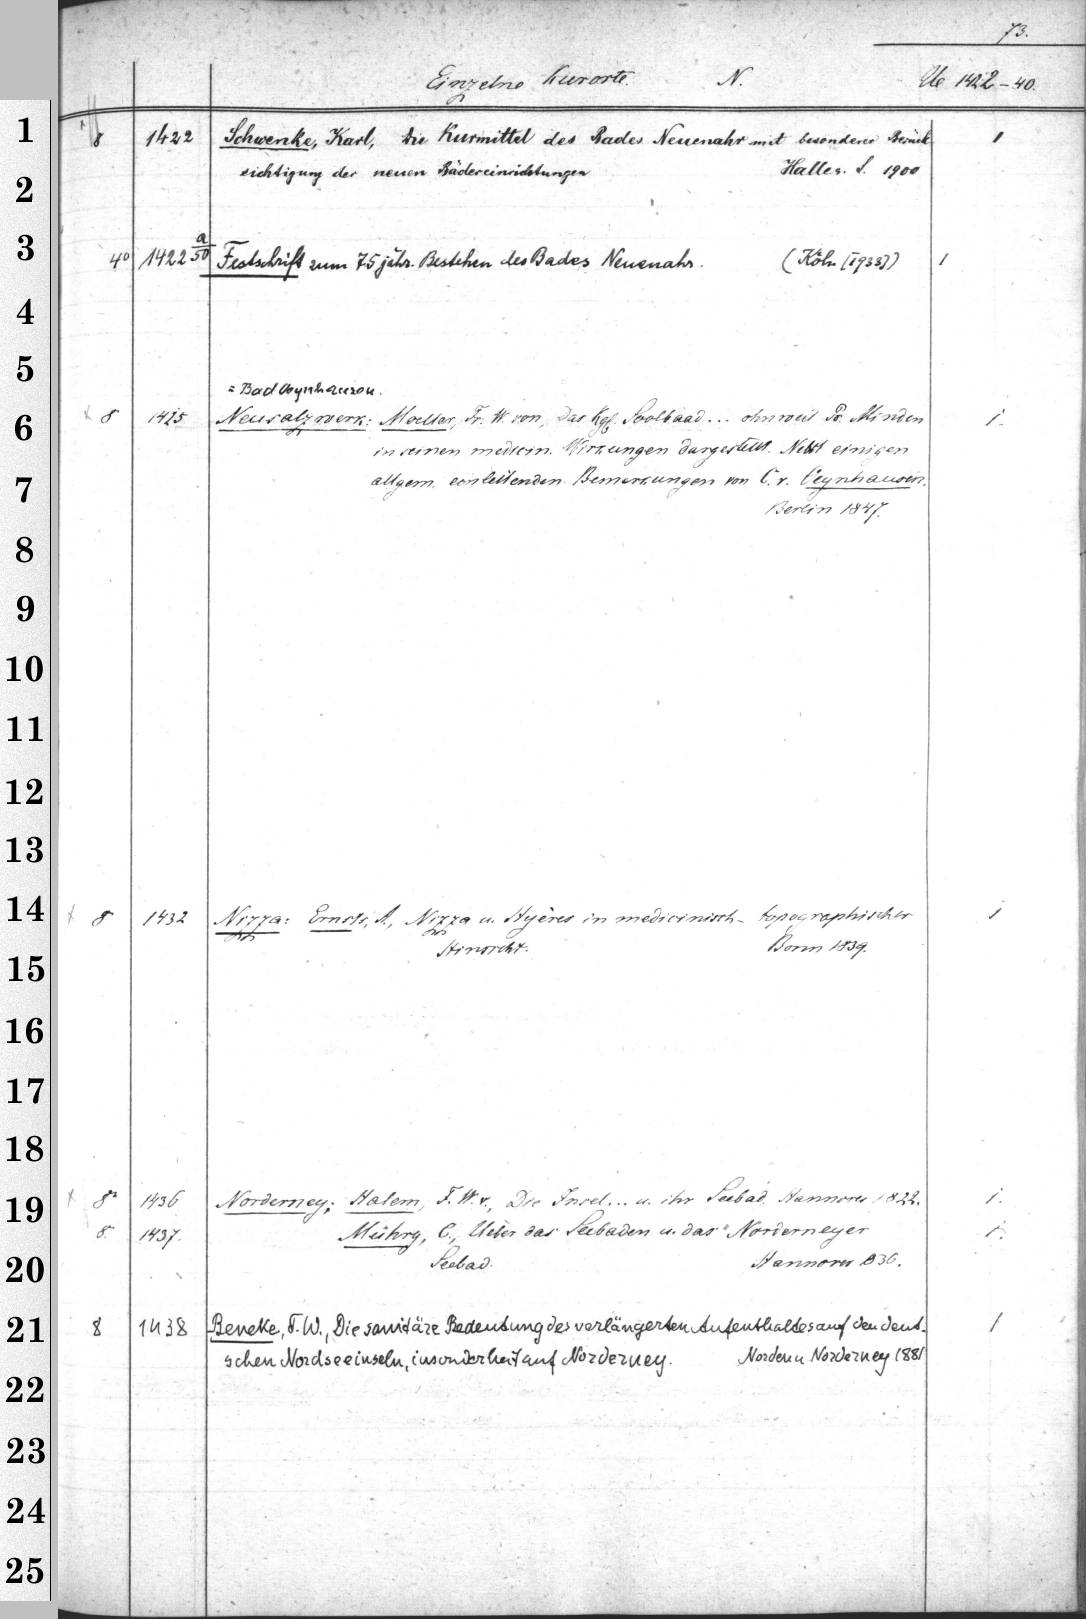 73.
Einzelne Kurorte. N. Ub 1422-40.
1
8 1422 Schwenke, Karl, Die Kurmittel des Bades Neuenahr mit besonderer Berück-
2
sichtigung der neuen Bädereinrichtungen Halle a. S. 1900 1
3
4° 1422 a/50 Festschrift zum 75 jähr. Bestehen des Bades Neuenahr. (Köln [1933]) 1
4
5
= Bad Oeynhausen.
6
x 8 1425 Neusalzwerk: Moeller, Fr. W. von, Das Kgl. Soolbaad ... ohnweit Pr. Minden 1.
in seinen medicin. Wirkungen dargestellt. Nebst einigen
7
allgem. einleitenden Bemerkungen von C. v. Oeynhausen.
Berlin 1847.
8
9
10
11
12
13
14
x 8 1432 Nizza: Ernsts, A., Nizza u. Hyères in medicinisch-topographischer 1
Hinsicht. Bonn 1839.
15
16
17
18
19
x 8° 1436 Norderney: Halem, F. W. v., Die Insel ... u. ihr Seebad. Hannover 1822. 1.
8 1437. Mühry, C., Ueber das Seebaden u. das Norderneyer 1.
20
Seebad. Hannover 836.
21
8 1438 Beneke, F. W., Die sanitäre Bedeutung des verlängerten Aufenthaltes auf den deut- 1
schen Nordseeinseln, insonderheit auf Norderney. Norden u. Norderney 1881
22
23
24
25